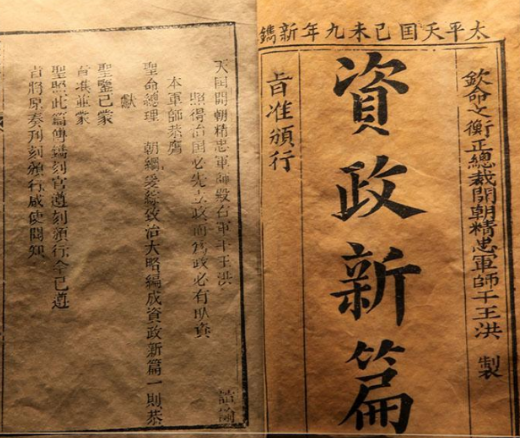 太平天囯己未九年新鐫
欽命文衡正總裁開朝精忠軍師干王洪 製
資政新篇
旨准頒行
天囯開朝精忠軍師殿右軍干王洪 諭
照得治囯必先立政而爲政必有取資
本軍師恭膺
聖命總理 朝綱爰綜致治大略編成資政新篇一則恭
獻
聖鑒已蒙
旨准並蒙
聖照此篇傳鐫刻官遵刻頒行今已遵
旨將原奏刊刻頒行咸使聞知